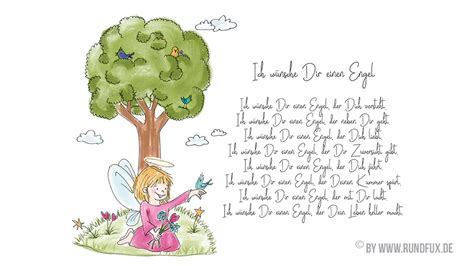 Ich wünsche Dir einen Engel
Ich wünsche Dir einen Engel, der Dich versteht.
Ich wünsche Dir einen Engel, der neben Dir geht.
Ich wünsche Dir einen Engel, der Dich liebt.
Ich wünsche Dir einen Engel, der Dir Zuversicht gibt.
Ich wünsche Dir einen Engel, der Dich führt.
Ich wünsche Dir einen Engel, der Deinen Kummer spürt.
Ich wünsche Dir einen Engel, der mit Dir lacht.
Ich wünsche Dir einen Engel, der Dein Leben heller macht.
© BY WWW.RUNDFUX.DE